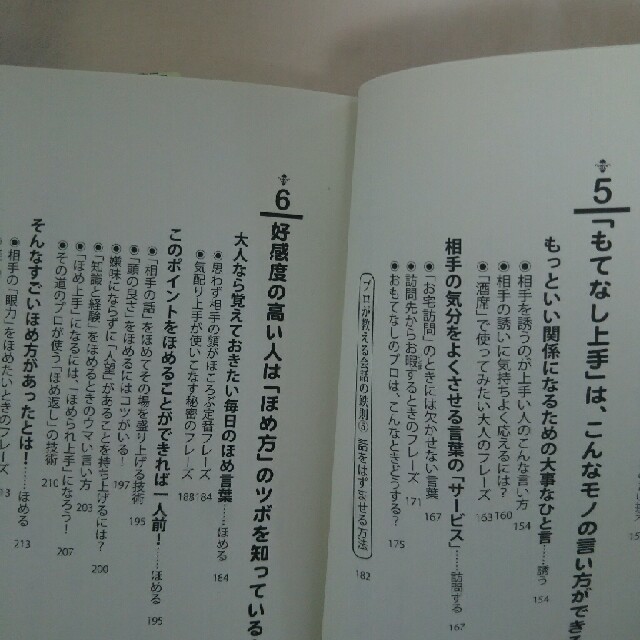 5 「もてなし上手」は、こんなモノの言い方ができ
もっといい関係になるための大事なひと言……誘う 154
●相手を誘うのが上手い人のこんな言い方 154
●相手の誘いに気持ちよく応えるには? 160
●「酒席」で使ってみたい大人のフレーズ 163
相手の気分をよくさせる言葉の「サービス」……訪問する 167
●「お宅訪問」のときには欠かせない言葉 167
●訪問先からお暇するときのフレーズ 171
●おもてなしのプロは、こんなときどうする? 175
プロが教える会話の鉄則③ 話をはずませる方法 182
6 好感度の高い人は「ほめ方」のツボを知っている
大人なら覚えておきたい毎日のほめ言葉……ほめる 184
●思わず相手の顔がほころぶ定番フレーズ 184
●気配り上手が使いこなす秘密のフレーズ 188
このポイントをほめることができれば一人前!……ほめる 195
●「相手の話」をほめてその場を盛り上げる技術 195
●「頭の良さ」をほめるにはコツがいる! 197
●嫌味にならずに「人望」があることを持ち上げるには? 200
●「知識と経験」をほめるときのウマい言い方 203
●「ほめ上手」になるには、「ほめられ上手」になろう! 207
●その道のプロが使う「ほめ返し」の技術 210
そんなすごいほめ方があったとは!……ほめる 213
●相手の「眼力」をほめたいときのフレーズ 213